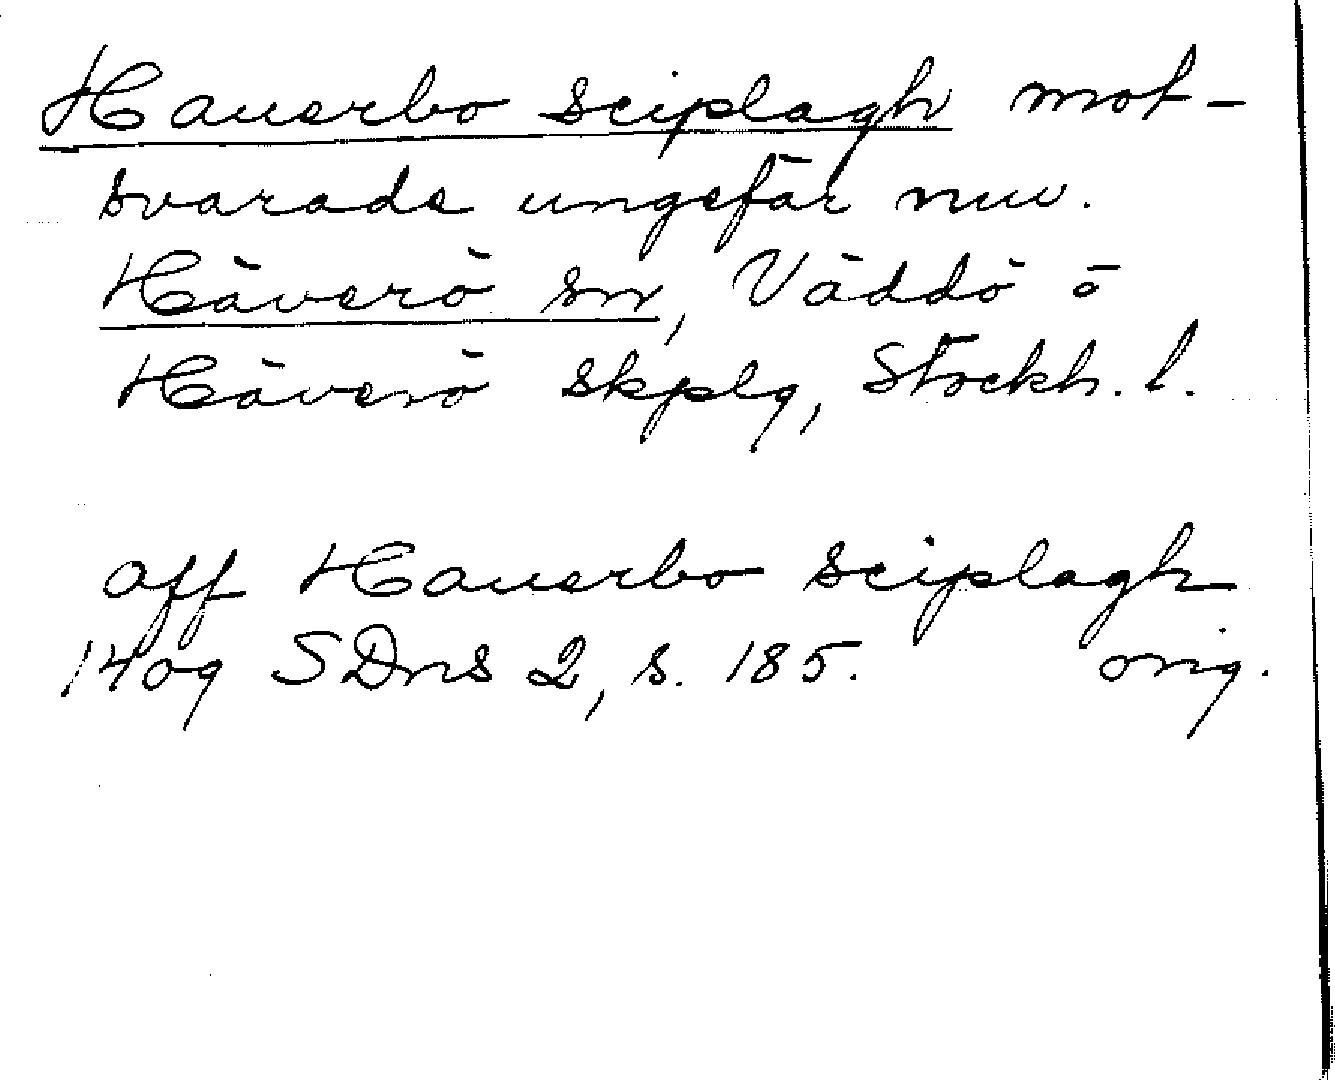 Hauerbo sciplagh mot-
svarade ungefär nuv.
Häverö sn, Väddö o
Häverö skplg, Stockh. l.
aff Hauerbo sciplagh
1409 SDns 2, s. 185. orig.